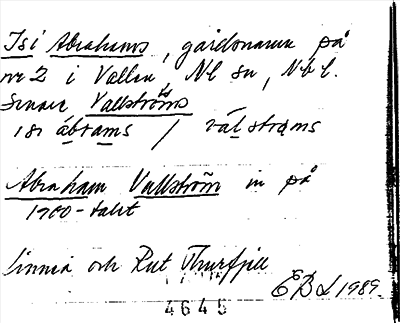 Isi Abrahams, gårdsnamn på
nr 2 i Vallen, Nl sn, Nbl.
Senare Vallströms
isi ábrams / válstrøms
Abraham Vallström in på
1700-talet
Linnéa och Rut Thurfjell
EBL 1989.
4645